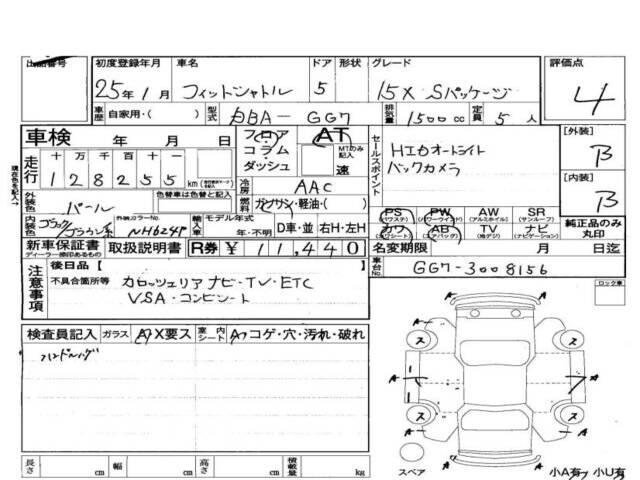 出品番号 初度登録年月 車名 ドア 形状 グレード 評価点
25年1月 フィットシャトル 5 15X Sパッケージ 4
車歴 自家用・( ) 型式 DBA-GG7 排気量 1500cc 定員 5人
車検 年 月 日 フロア コラム ダッシュ AT MTのみ記入 速
セールスポイント HIDオートライト バックカメラ
[外装] B
[内装] B
走行 十 万 千 百 十 一
128255 km
現在色を記入 外装色 パール 色替車は色替と記入
冷房 AAC
燃料 ガソリン・軽油・( )
内装色 ブラック/ブラウン系 外装カラーNo. NH624P 輸入車 モデル年式 年・不明 D車・並 右H・左H
PS (パワステ) PW (パワーウインド) AW (アルミホイル) SR (サンルーフ)
カワ (カワシート) AB (エアバッグ) TV (地デジ) ナビ (ナビゲーション) 純正品のみ丸印
新車保証書 ディーラー捺印あるもの 取扱説明書 R券 ¥11,440 名変期限 月 日迄
注意事項 後日品【 】 車台No. GG7-3008156
不具合箇所等 カロッツェリア ナビ・TV・ETC
VSA・コンビシート
ロック車
検査員記入 ガラス A X要ス 室内シート A コゲ・穴・汚れ・破れ
ハンドルハゲ
A A A A
ス ス ス ス
スペア 小A有 小U有
長さ cm 幅 cm 高さ cm 積載量 kg